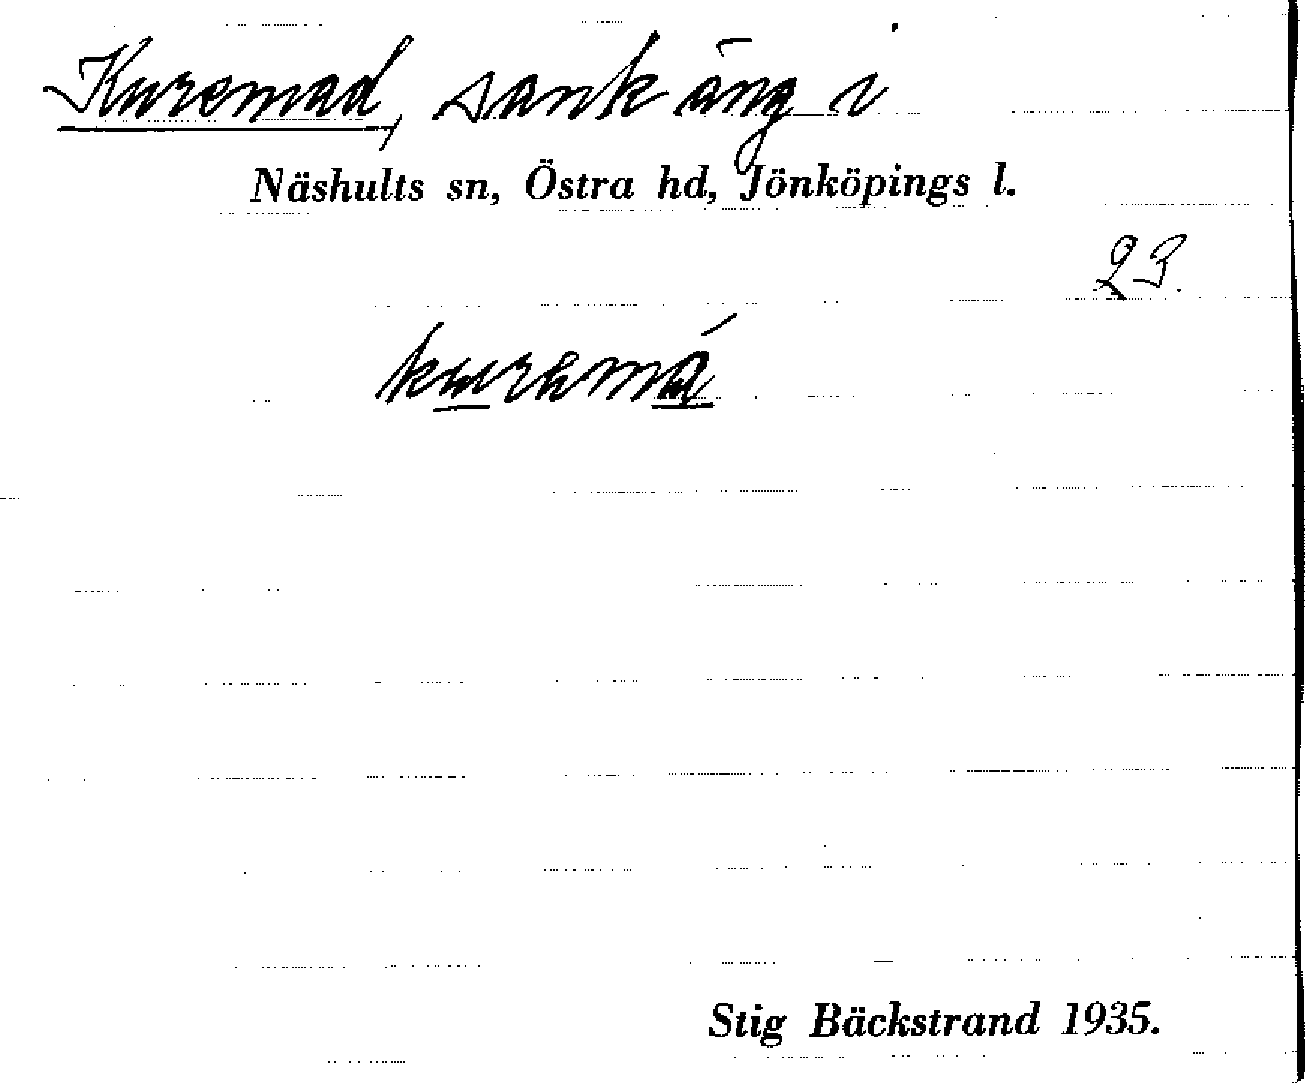 Kuremad, sank äng i
Näshults sn, Östra hd, Jönköpings l.
23.
kuramá
Stig Bäckstrand 1935.